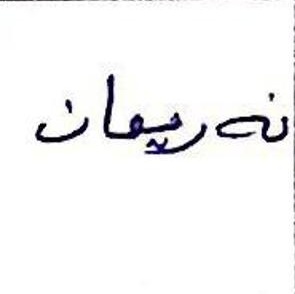 نەریمان